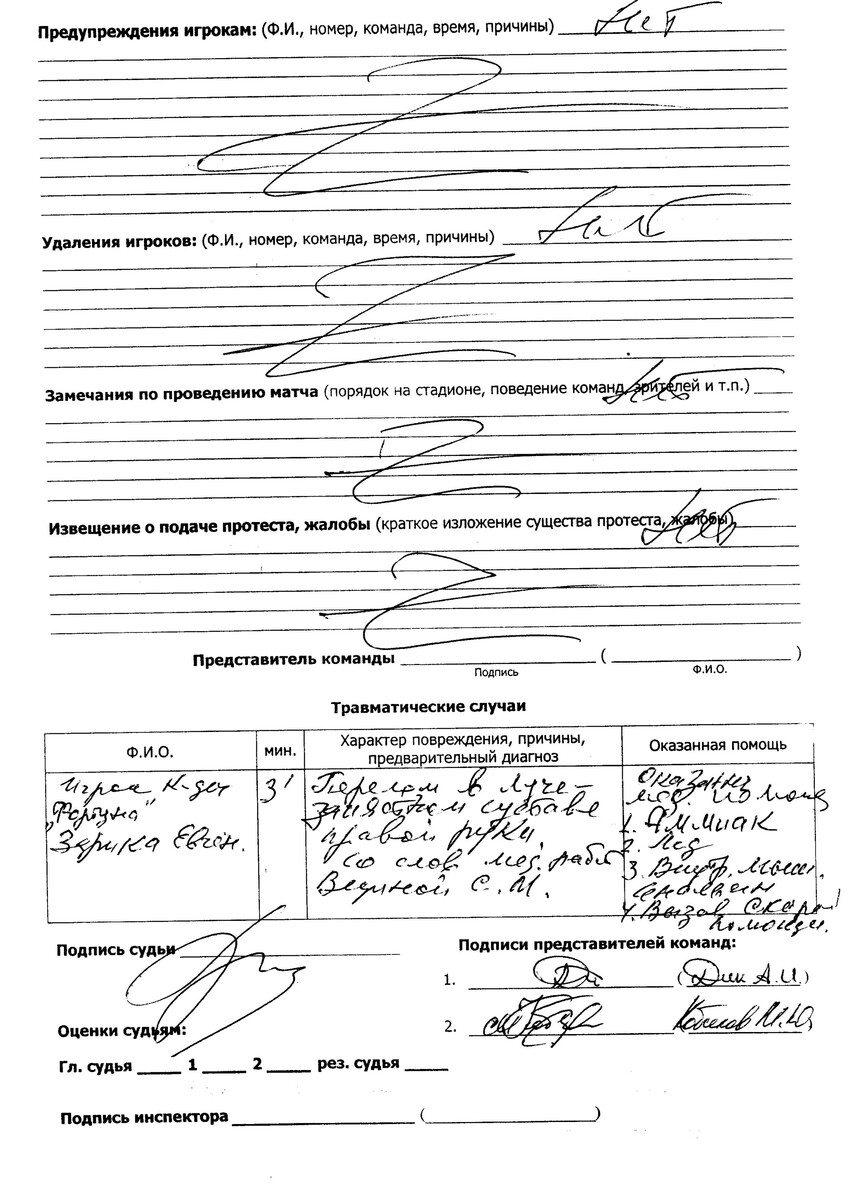 Предупреждения игрокам: (Ф.И., номер, команда, время, причины) Нет
Удаления игроков: (Ф.И., номер, команда, время, причины) Нет
Замечания по проведению матча (порядок на стадионе, поведение команд, зрителей и т.п.) Нет
Извещение о подаче протеста, жалобы (краткое изложение существа протеста, жалобы) Нет
Представитель команды ( )
Подпись Ф.И.О.
Травматические случаи
Ф.И.О. мин. Характер повреждения, причины, предварительный диагноз Оказанная помощь
Игрок к-ды 3'
"Фортуна"
Зарика Евген.
Перелом в луче-
запястном суставе
правой руки.
Со слов мед. раб.
С.И.
Оказанна
мед. помощь
1. Аммиак
2. Лед
3. Внутр. мыш.
4. Вызов Скорой
помощи.
Подпись судьи
Подписи представителей команд:
1. (Дик А.И.)
2.
Оценки судьям:
Гл. судья 1 2 рез. судья
Подпись инспектора ( )